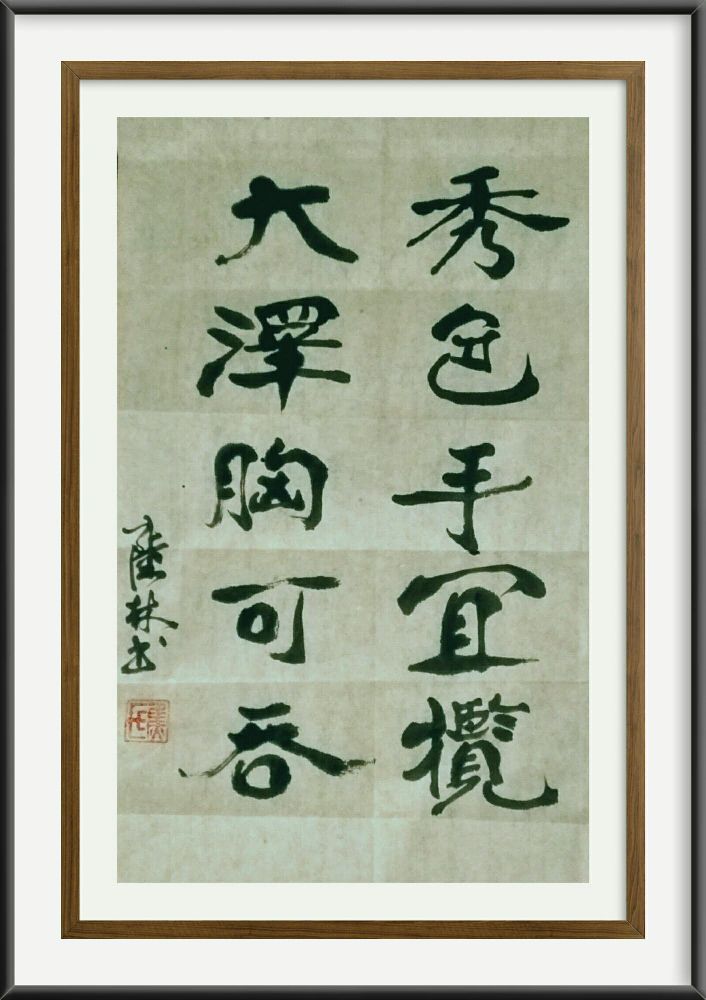 秀色手宜攬
大澤胸可吞
林书